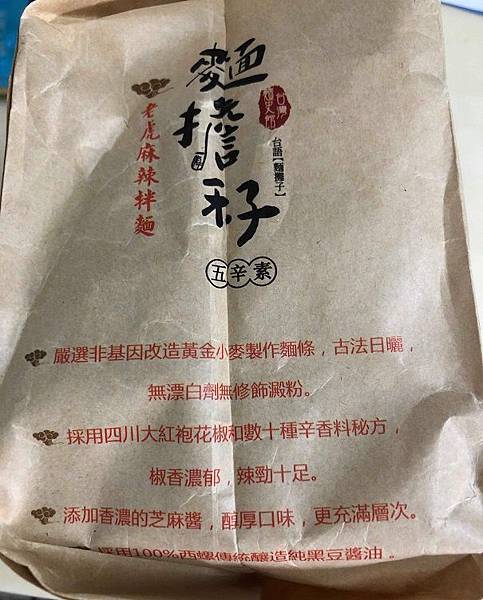 麵擔仔
台語【麵攤子】
老虎麻辣拌麵
五辛素
嚴選非基因改造黃金小麥製作麵條，古法日曬，
無漂白劑無修飾澱粉。
採用四川大紅袍花椒和數十種辛香料秘方，
椒香濃郁，辣勁十足。
添加香濃的芝麻醬，醇厚口味，更充滿層次。
採用100%西螺傳統釀造純黑豆醬油。